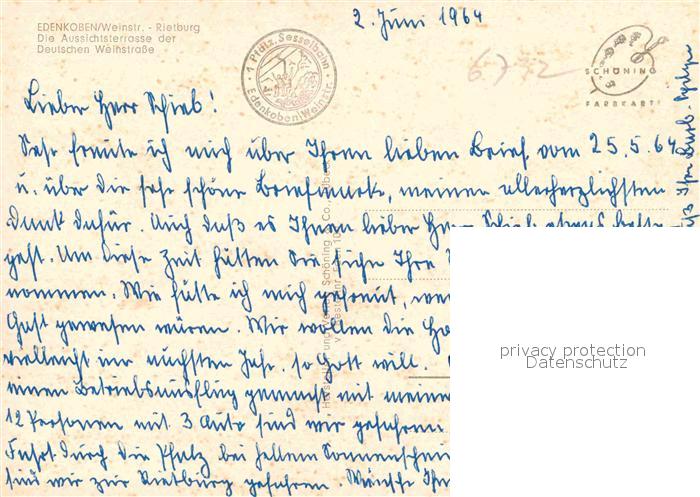 2. Juni 1964
EDENKOBEN/Weinstr. - Rietburg
Die Aussichtsterrasse der
Deutschen Weinstraße
1. Pfälz. Sesselbahn
Edenkoben/Weinstr.
6772
SCHÖNING
FARBKARTE
Lieber Herr Schieb!
Sehr freute ich mich über Ihren lieben Brief vom 25.5.64
u. über die sehr schöne Briefmarke, meinen allerherzlichsten
Dank dafür. Auch daß es Ihnen lieber Herr Schieb etwas
geht. Um diese Zeit hätten Sie sicher Ihre
nommen. Wie hätte ich mich gefreut, wen
Gast gewesen wären. Wir wollen die Ho
vielleicht im nächsten Jahr, so Gott will.
einen Betriebsausflug gemacht mit meine
12 Personen mit 3 Auto sind wir gefahren
Fahrt durch die Pfalz bei hellem Sonnenschein
sind wir zur Rietburg gefahren. Wünsche Ihn
privacy protection
Datenschutz